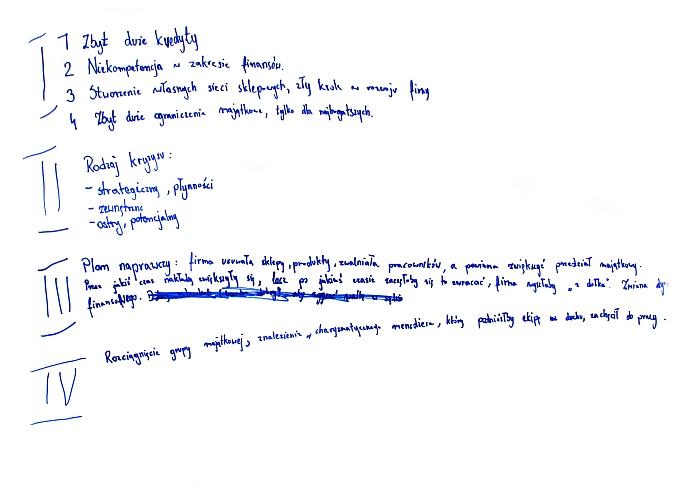 I 1 Zbyt duże kredyty
2 Niekompetencja w zakresie finansów.
3 Stworzenie własnych sieci sklepowych, zły krok w rozwoju firmy
4 Zbyt duże ograniczenia majątkowe, tylko dla najbogatszych.
II Rodzaj kryzysu:
- strategiczny, płynności
- zewnętrzne
- ostry, potencjalny
III Plan naprawczy: firma usuwała sklepy, produkty, zwalniała pracowników, a powinna zwiększyć przedział majątkowy.
Przez jakiś czas nakłady zwiększyłyby się, lecz po jakimś czasie zaczęłoby się to zwracać, firma wyszłaby „z dołka”. Zmiana
finansowego.
IV Rozciągnięcie grupy majątkowej, znalezienie charyzmatycznego menedżera, który podniósłby ekipę na duchu, zachęcał do pracy.